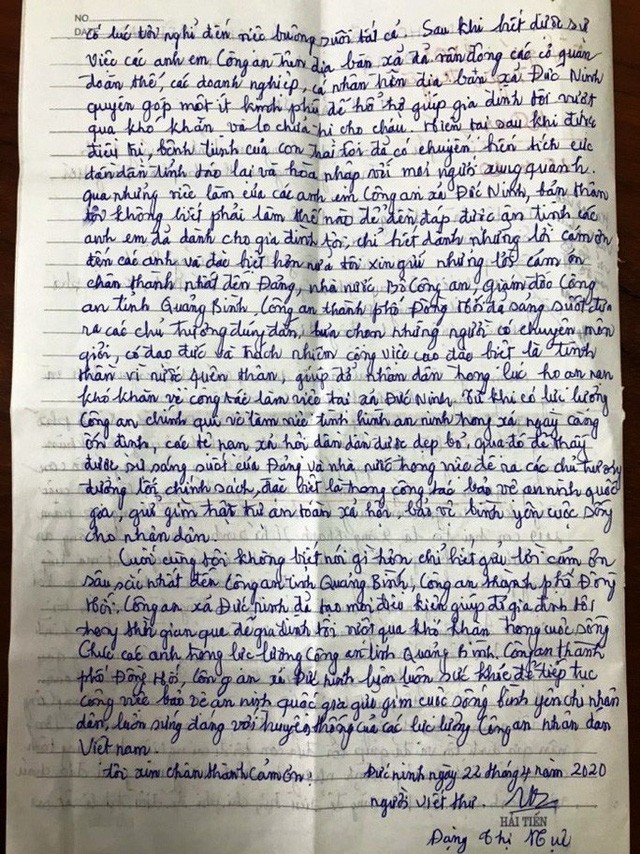 NO
DA
có lúc tôi nghỉ đến việc buông xuôi tất cả. Sau khi biết được sự
việc các anh em Công an trên địa bàn xã đã vân động các cơ quan
đoàn thể, các doanh nghiệp, cá nhân trên địa bàn xã Đức Ninh
quyên góp một ít kinh phí để hổ trợ giúp gia đình tôi vượt
qua khó khăn và lo chữa trị cho cháu. Hiện tại sau khi được
điều trị, bệnh tình của con trai tôi đã có chuyển biến tích cực
dần dần tỉnh táo lại và hòa nhập với mọi người xung quanh.
qua những việc làm của các anh em Công an xã Đức Ninh, bản thân
tôi không biết phải làm thế nào để đền đáp được ân tình các
anh em đã dành cho gia đình tôi, chỉ biết dành những lời cám ơn
đến các anh và đặc biệt hơn nửa tôi xin gửi những lời cám ơn
chân thành nhất đến Đảng, nhà nước, Bộ Công an, giám đốc Công
an tỉnh Quảng Bình, Công an thành phố Đồng Hới đã sáng suốt đưa
ra các chủ trương đúng đắn, lựa chọn những người có chuyên môn
giỏi, có đạo đức và trách nhiệm công việc cao đặc biệt là tinh
thần vì nước quên thân, giúp đở nhân dân trong lúc hoạn nạn
khó khăn về công tác làm việc tại xã Đức Ninh. Từ khi có lực lượng
Công an chính qui về làm việc tình hình an ninh trong xã ngày càng
ổn định, các tệ nạn xã hội dần dần được dẹp bỏ, qua đó để thấy
được sự sáng suốt của Đảng và nhà nước trong việc đề ra các chủ trương
đường lối, chính sách, đặc biệt là trong công tác bảo vệ an ninh quốc
gia, giử gìn trật tự an toàn xã hội, bảo vệ bình yên cuộc sống
cho nhân dân.
Cuối cùng tôi không biết nói gì hơn chỉ biết gửi lời cám ơn
sâu sắc nhất đến Công an tỉnh Quảng Bình, Công an thành phố Đồng
Hới, Công an xã Đức ninh đã tạo mọi điều kiện giúp đỡ gia đình tôi
trong thời gian qua để gia đình tôi vượt qua khó khăn trong cuộc sống
Chúc các anh trong lực lượng Công an tỉnh Quảng Bình, Công an thành
phố Đồng Hới, Công an xã Đức ninh luôn luôn sức khỏe để tiếp tục
công việc bảo vệ an ninh quốc gia giữ gìn cuộc sống bình yên cho nhân
dân, luôn xứng đáng với truyền thống của các lực lượng Công an nhân dân
Việt nam.
Tôi xin chân thành Cảm ơn!
Đức ninh ngày 22 tháng 4 năm 2020
người viết thư.
HẢI TIẾN
Đặng Thị Mựi